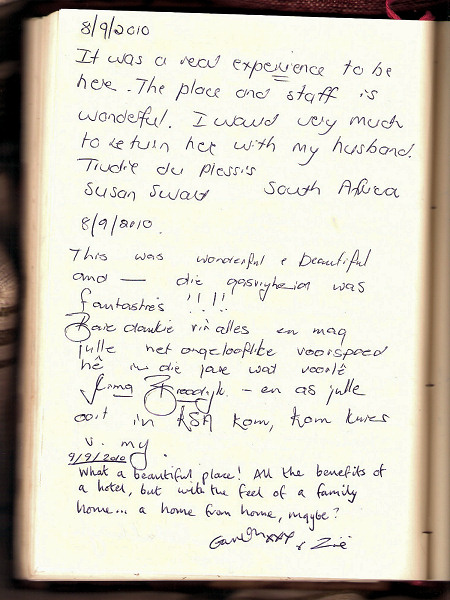 8/9/2010
It was a real experience to be
here. The place and staff is
wondeful. I would very much
to return here with my husband.
Trudie du Plessis
Susan Swart South Africa
8/9/2010.
This was wonderful & beautiful
and — die gasvryheid was
fantasties !!!!
Baie dankie vir alles en mag
julle net ongelooflike voorspoed
hê in die jare wat voorlê
- en as julle
ooit in RSA kom, kom kuier
v. my.
9/9/2010
What a beautiful place! All the benefits of
a hotel, but with the feel of a family
home... a home from home, maybe?
& Zoë